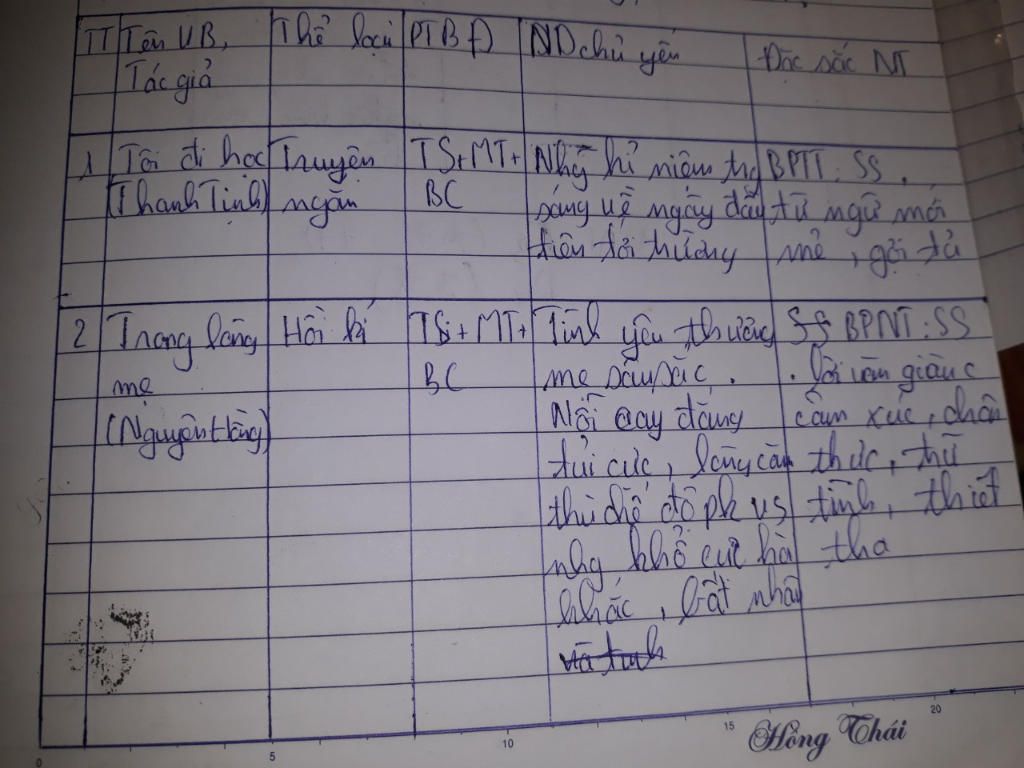 TT Tên VB, Thể loại PTBĐ ND chủ yếu Đặc sắc NT
Tác giả
1 Tôi đi học Truyện TS+MT+ Những kỉ niệm trg BPTT: SS,
(Thanh Tịnh) ngắn BC sáng về ngày đầu từ ngữ mới
tiên tới trường mẻ, gợi tả
2 Trong lòng Hồi kí TS+MT+ Tình yêu thương BPNT: SS
mẹ BC mẹ sâu sắc. . lời văn giàu c
(Nguyên Hồng) Nỗi cay đắng cảm xúc, chân
tủi cực, lòng căm thực, trữ
thù chế độ pk vs tình, thiết
nhg khổ cực hà tha
khắc, bất nhân
và tình
0 5 10 15 20
Hồng Thái